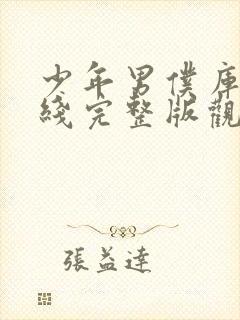 少年男僕庫
綫完整版觀
張益達